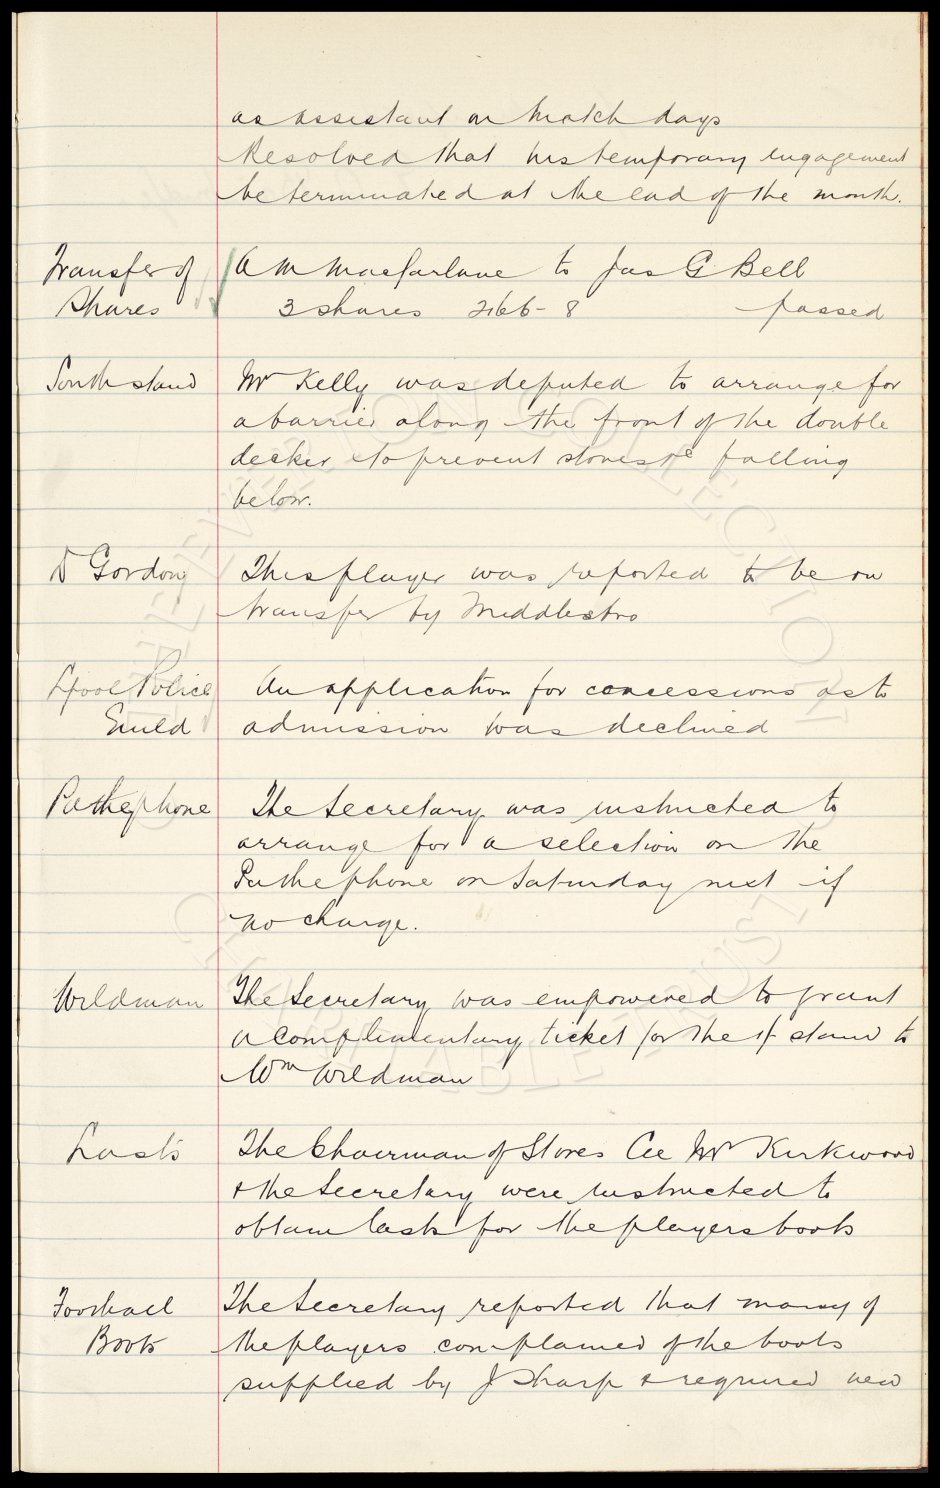 as assistant on match days
Resolved that his temporary engagement
be terminated at the end of the month.
Transfer of Shares
A M Macfarlane to Jas G Bell
3 shares 2166-8 passed
South stand
Mr Kelly was deputed to arrange for
a barrier along the front of the double
decker to prevent stones &c falling
below.
D Gordon
This player was reported to be on
transfer by Middlesbro
L'pool Police Guild
An application for concessions as to
admission was declined
Pathephone
The Secretary was instructed to
arrange for a selection on the
Pathephone on Saturday next if
no charge.
Wildman
The Secretary was empowered to grant
a complimentary ticket for the stand to
Wm Wildman
Lasts
The Chairman of Stores Cee Mr Kirkwood
& the Secretary were instructed to
obtain lasts for the players boots
Football Boots
The Secretary reported that many of
the players complained of the boots
supplied by J Sharp & required new
THE EVERTON COLLECTION
CHARITABLE TRUST